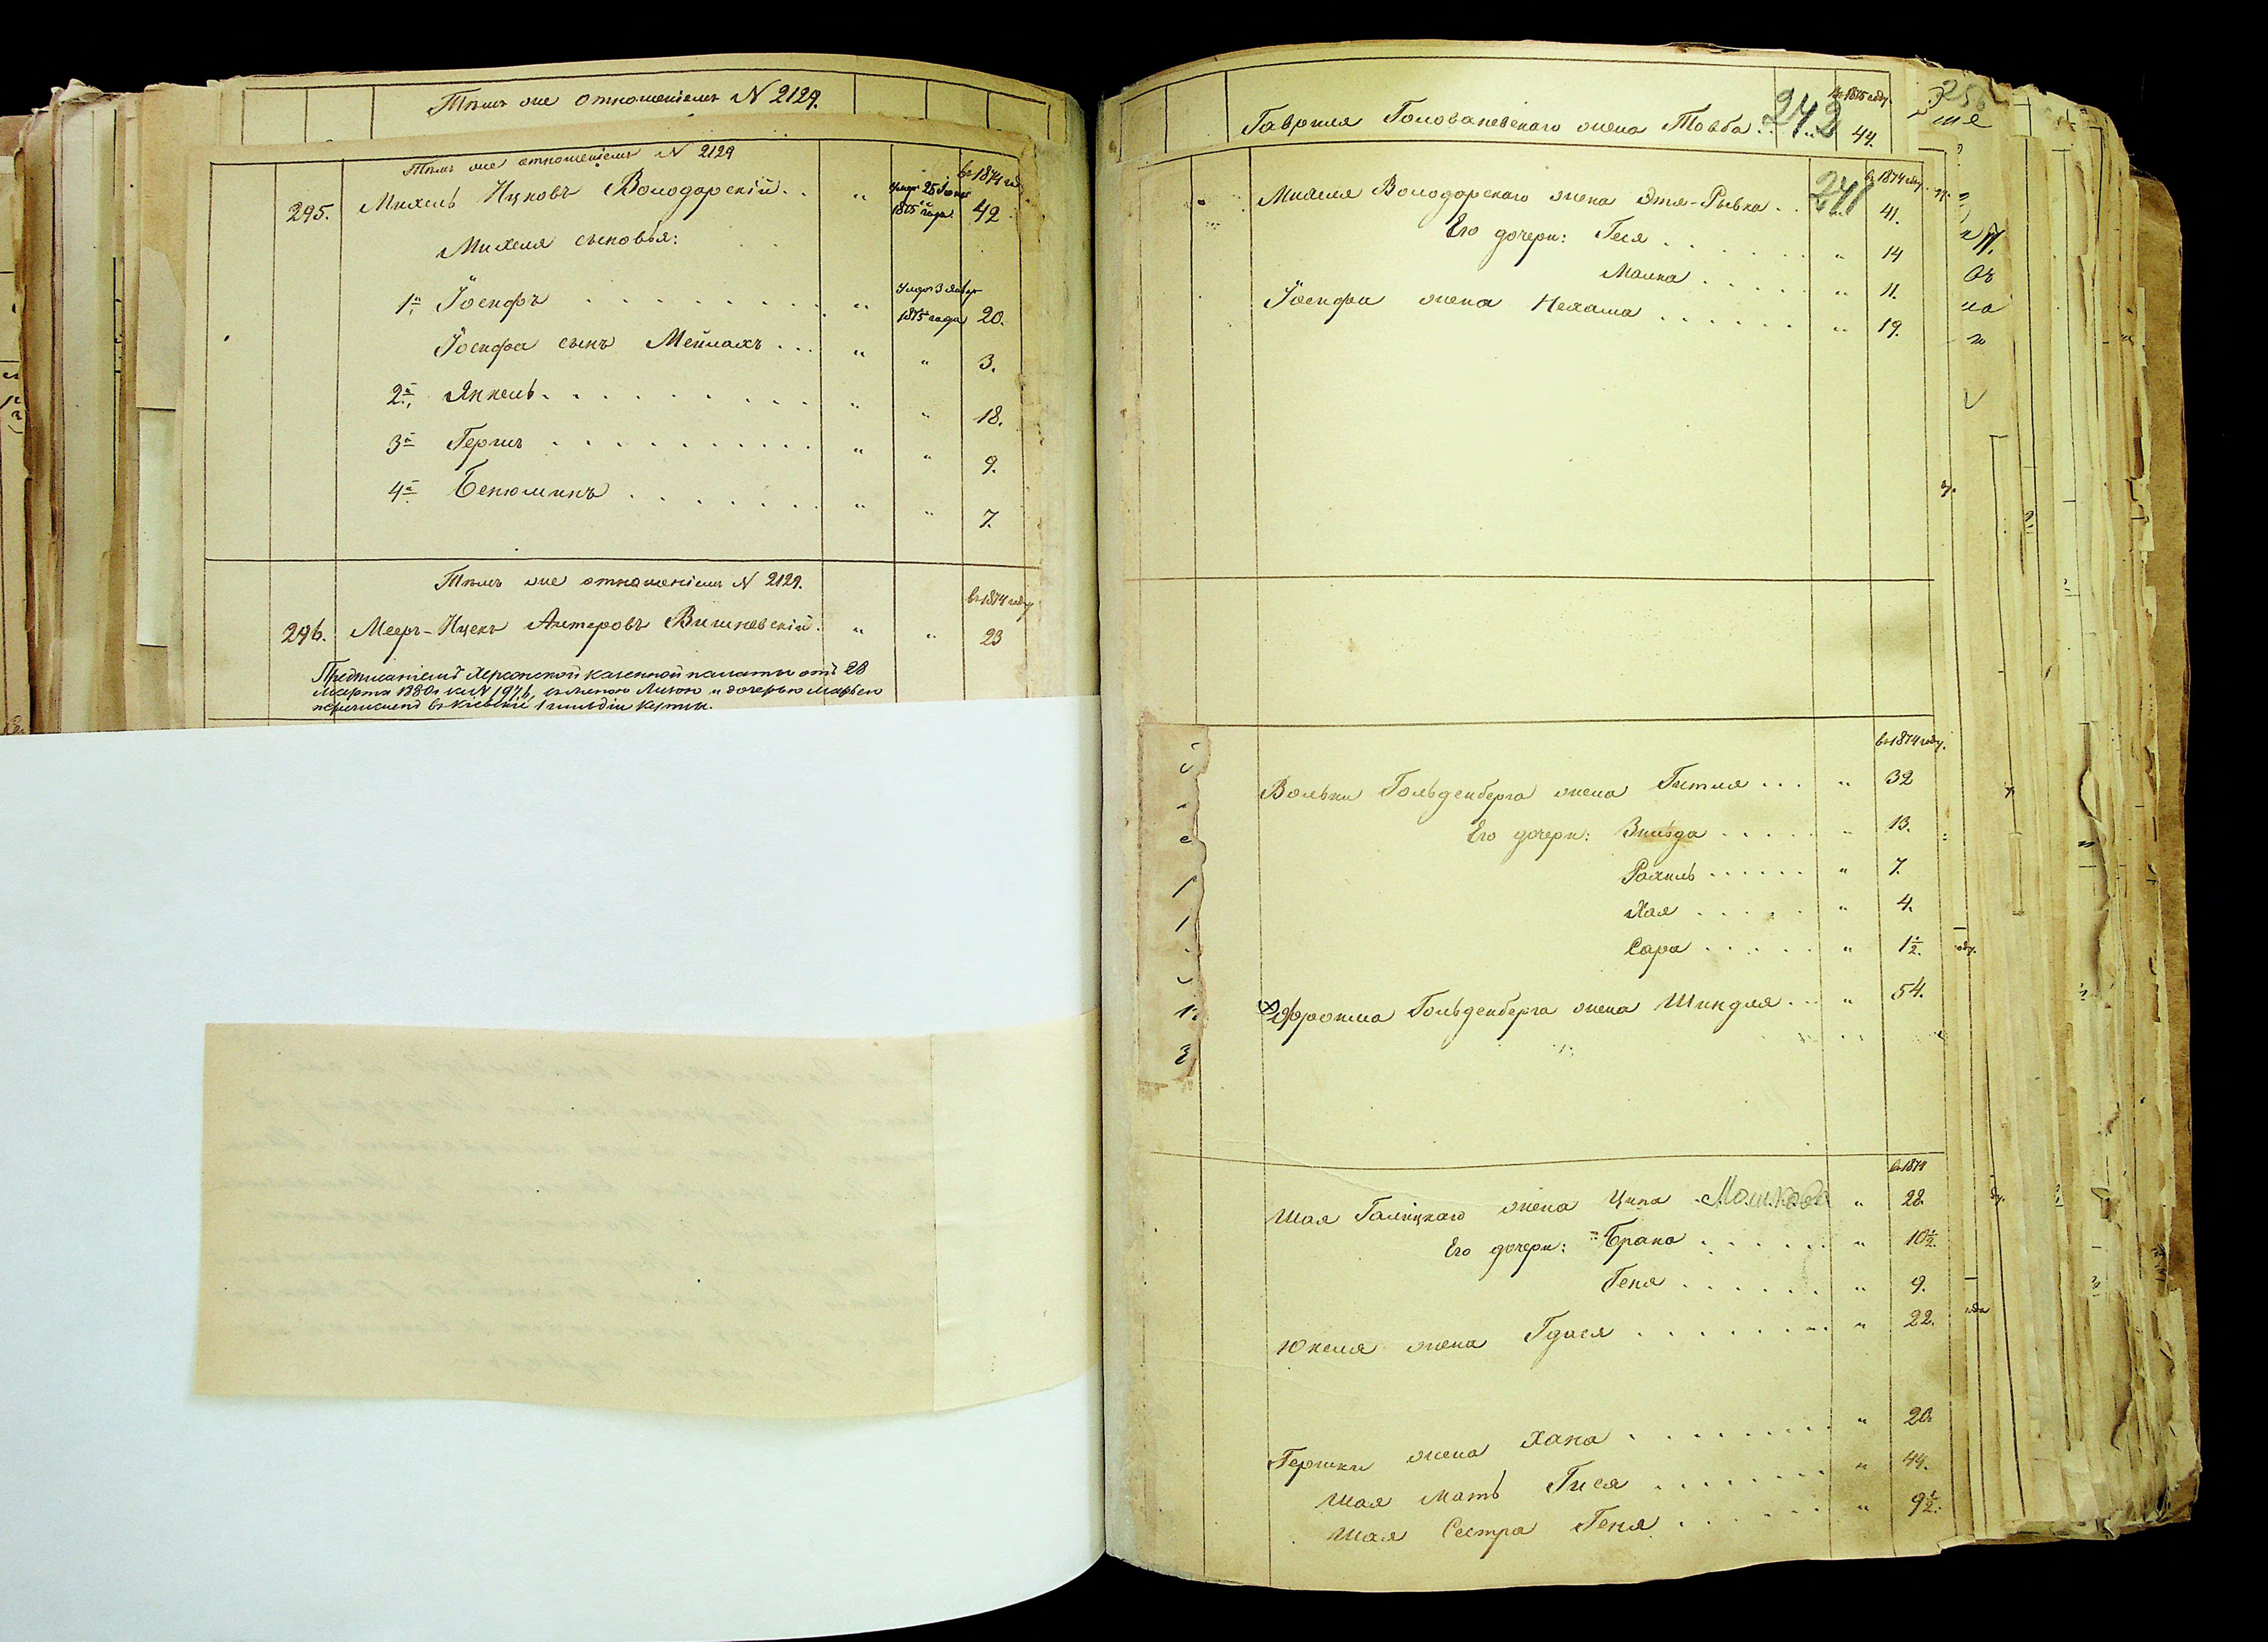 Тѣмъ же отношеніемъ N 2129.
Тѣмъ же отношеніемъ N 2129
въ 1874 го
295. Михель Ицковъ Володарскій . . " Умеръ 25 Іюня 1875 года 42
Михеля сыновья:
1й Іосифъ . . . " Умеръ 3 Январ 1875 года 20.
Іосифа сынъ Мейлахъ . . . " " 3.
2й, Янкель . . . " " 18.
3й Гершъ . . . " " 9.
4й Бенюминъ . . . " " 7.
Тѣмъ же отношеніемъ N 2129.
въ 1874 году
296. Мееръ-Ицекъ Антеровъ Вишневскій. " " 23
Предписаніемъ Херсонской казенной палаты отъ 28
Марта 1880 г за N 1976, съ женою Лизою и дочерью Марьею
перечисленъ въ Кіевскіе 1 гильдіи купцы.
242
въ 1875 году.
Гавриля Голованевскаго жена Товба . . . 44.
256
241
въ 1874 году.
Михеля Володарскаго жена Этя-Рывка . . 41.
Его дочери: Геся . . . " 14
Малка . . . " 11.
Іосифа жена Нехама . . . " 19.
въ 1874 году.
Вольки Гольденберга жена Гитля . . . " 32
Его дочери: Злызда . . . " 13.
Рахиль . . . " 7.
Хая . . . " 4.
Сара . . . " 1½.
Эфроима Гольденберга жена Шиндля . . . " 54.
въ 1874
Шая Галицкаго жена Ципа Мошкова " 28.
Его дочери: Брана . . . " 10½.
Геня . . . " 9.
Юкеля жена Гдася . . . " 22.
Гершки жена Хана . . . " 20.
Шая Мать Гися . . . " 44.
Шая Сестра Геня . . . " 9½.